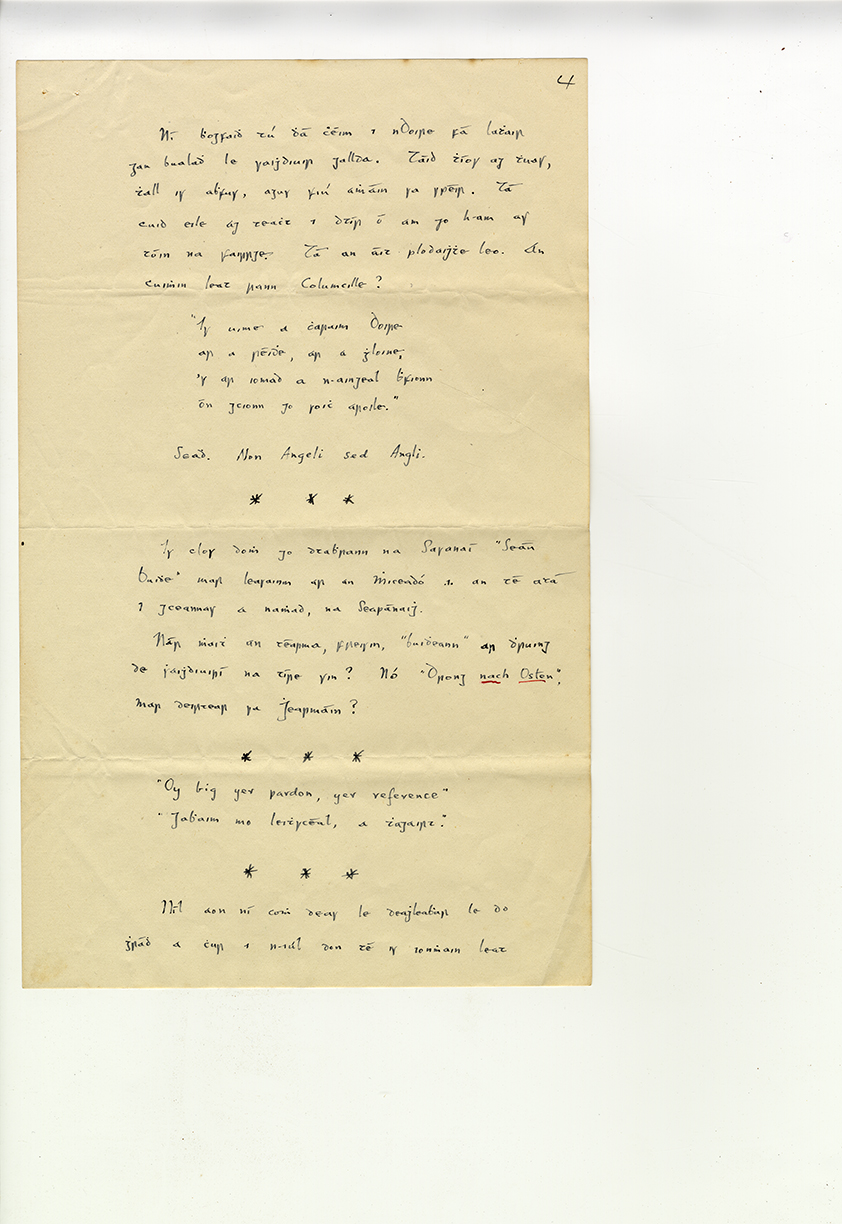 4
Ní ḃogfaiḋ tú ḋá ċéim i nDoire fá láṫair
gan bualaḋ le saiġdiuir gallda. Táid ṫíos ag ṫuas,
ṫall is aḃfus, agus fiú aṁáin sa spéir. Tá
cuid eile ag teaċt i dtír ó am go h-am as
tóin na fairrge. Tá an áit plodaiġṫe leo. An
cuiṁin leat rann Columcille?
"Is uime a ċaraim Doire
ar a réiḋe, ar a ġloine,
's ar iomad a n-aingeal ḃfionn
ón gcionn go roiċ aroile."
Seaḋ. Non Angeli sed Angli.
* * *
Is clos doṁ go dtaḃrann na Sasanaiġ "Seán
Buiḋe" mar leasainm ar an Miceadó .i. an té atá
i gceannas a náṁad, na Seapánaiġ.
Nár ṁaiṫ an téarma, freisin, "buiḋeann" ar ḋruing
de ṡaiġdiuirí na tíre sin? Nó "Drong nach Osten",
mar deirtear sa Ġearmáin?
* * *
"Oy big yer pardon, yer reference"
"Gaḃaim mo leiṫscéal, a ṡagairt."
* * *
Níl aon ní coṁ deas le deaġleaḃar le do
ġráḋ a ċur i n-iúl don té is ionṁain leat